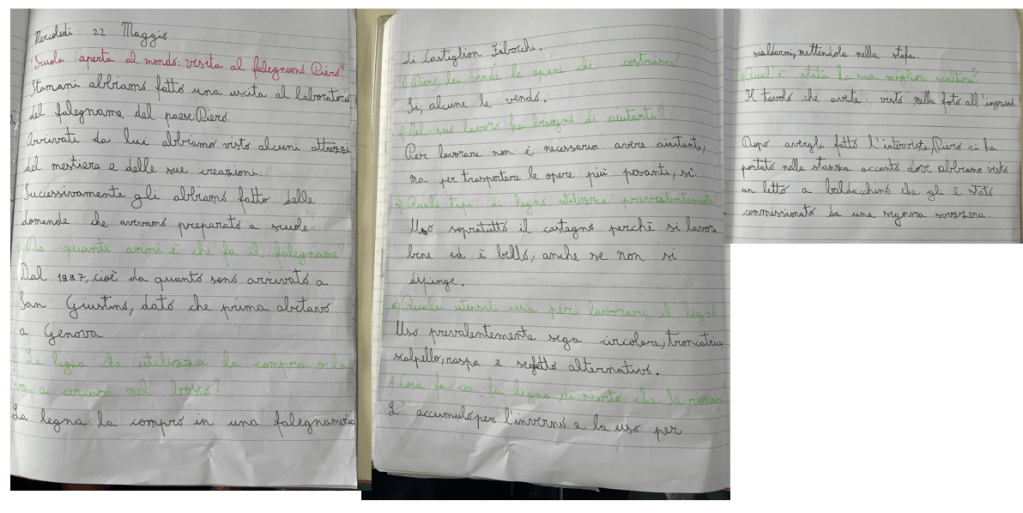 Mercoledì 22 Maggio
Scuola aperta al mondo: visita al falegname Piero"
Stamani abbiamo fatto una uscita al laboratorio
del falegname del paese Piero.
Arrivati da lui abbiamo visto alcuni attrezzi
del mestiere e delle sue creazioni.
Successivamente gli abbiamo fatto delle
domande che avevamo preparato a scuola.
1) Da quanti anni è che fa il falegname?
Dal 1997, cioè da quando sono arrivato a
San Giustino, dato che prima abitavo
a Genova.
2) La legna che utilizza la compra o la
va a cercare nel bosco?
La legna la compro in una falegnameria
di Castiglion Fibocchi.
3) Piero, lei vende le opere che costruisce?
Sì, alcune le vendo.
4) Nel suo lavoro ha bisogno di aiutanti?
Per lavorare non è necessario avere aiutanti,
ma per trasportare le opere più pesanti, sì.
5) Quale tipi di legno utilizza prevalentemente?
Uso sopratutto il castagno perchè si lavora
bene ed è bello, anche se non si
dipinge.
6) Quali utensili usa per lavorare il legno
Uso prevalentemente sega circolare, troncatrice
scalpello, raspa e seghetto alternativo.
7) Cosa fa con la legna di scarto che le rimane
L'accumulo per l'inverno e la uso per
scaldarmi, mettendola nella stufa.
8) Qual è stata la sua miglior scultura?
Il tavolo che avete visto nella foto all'ingresso
Dopo avergli fatto l'intervista, Piero ci ha
portato nella stanza accanto dove abbiamo visto
un letto a baldacchino che gli è stato
commissionato da una signora svizzera.